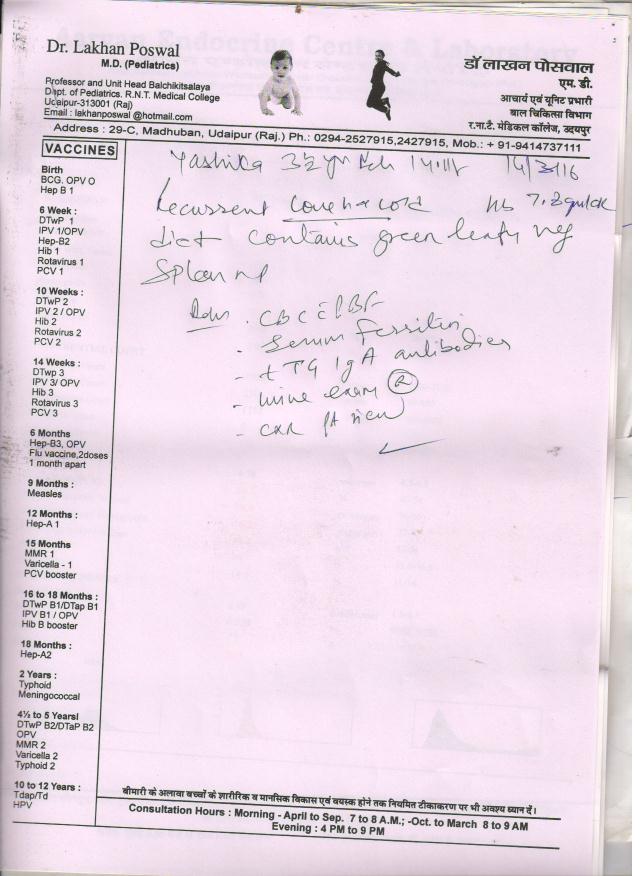 Dr. Lakhan Poswal
M.D. (Pediatrics)
Professor and Unit Head Balchikitsalaya
Dept. of Pediatrics. R.N.T. Medical College
Udaipur-313001 (Raj)
Email : lakhanposwal @hotmail.com
डॉ लाखन पोसवाल
एम. डी.
आचार्य एवं यूनिट प्रभारी
बाल चिकित्सा विभाग
र.ना.टै. मेडिकल कॉलेज, उदयपुर
Address : 29-C, Madhuban, Udaipur (Raj.) Ph.: 0294-2527915,2427915, Mob.: + 91-9414737111
VACCINES
Birth
BCG. OPV O
Hep B 1
6 Week :
DTwP 1
IPV 1/OPV
Hep-B2
Hib 1
Rotavirus 1
PCV 1
10 Weeks :
DTwP 2
IPV 2 / OPV
Hib 2
Rotavirus 2
PCV 2
14 Weeks :
DTwp 3
IPV 3/ OPV
Hib 3
Rotavirus 3
PCV 3
6 Months
Hep-B3, OPV
Flu vaccine,2doses
1 month apart
9 Months :
Measles
12 Months :
Hep-A 1
15 Months
MMR 1
Varicella - 1
PCV booster
16 to 18 Months :
DTwP B1/DTap B1
IPV B1 / OPV
Hib B booster
18 Months :
Hep-A2
2 Years :
Typhoid
Meningococcal
4½ to 5 Yearsl
DTwP B2/DTaP B2
OPV
MMR 2
Varicella 2
Typhoid 2
10 to 12 Years :
Tdap/Td
HPV
Yashika 3½ yr 14/3/16
Recurrent cough cold Hb 7.2
diet contains green leafy veg
Spleen np
Adv . CBC c PBF
- Serum Ferritin
- tTG IgA antibodies
- urine exam (R)
- CXR PA view
बीमारी के अलावा बच्चों के शारीरिक व मानसिक विकास एवं वयस्क होने तक नियमित टीकाकरण पर भी अवश्य ध्यान दें।
Consultation Hours : Morning - April to Sep. 7 to 8 A.M.; -Oct. to March 8 to 9 AM
Evening : 4 PM to 9 PM